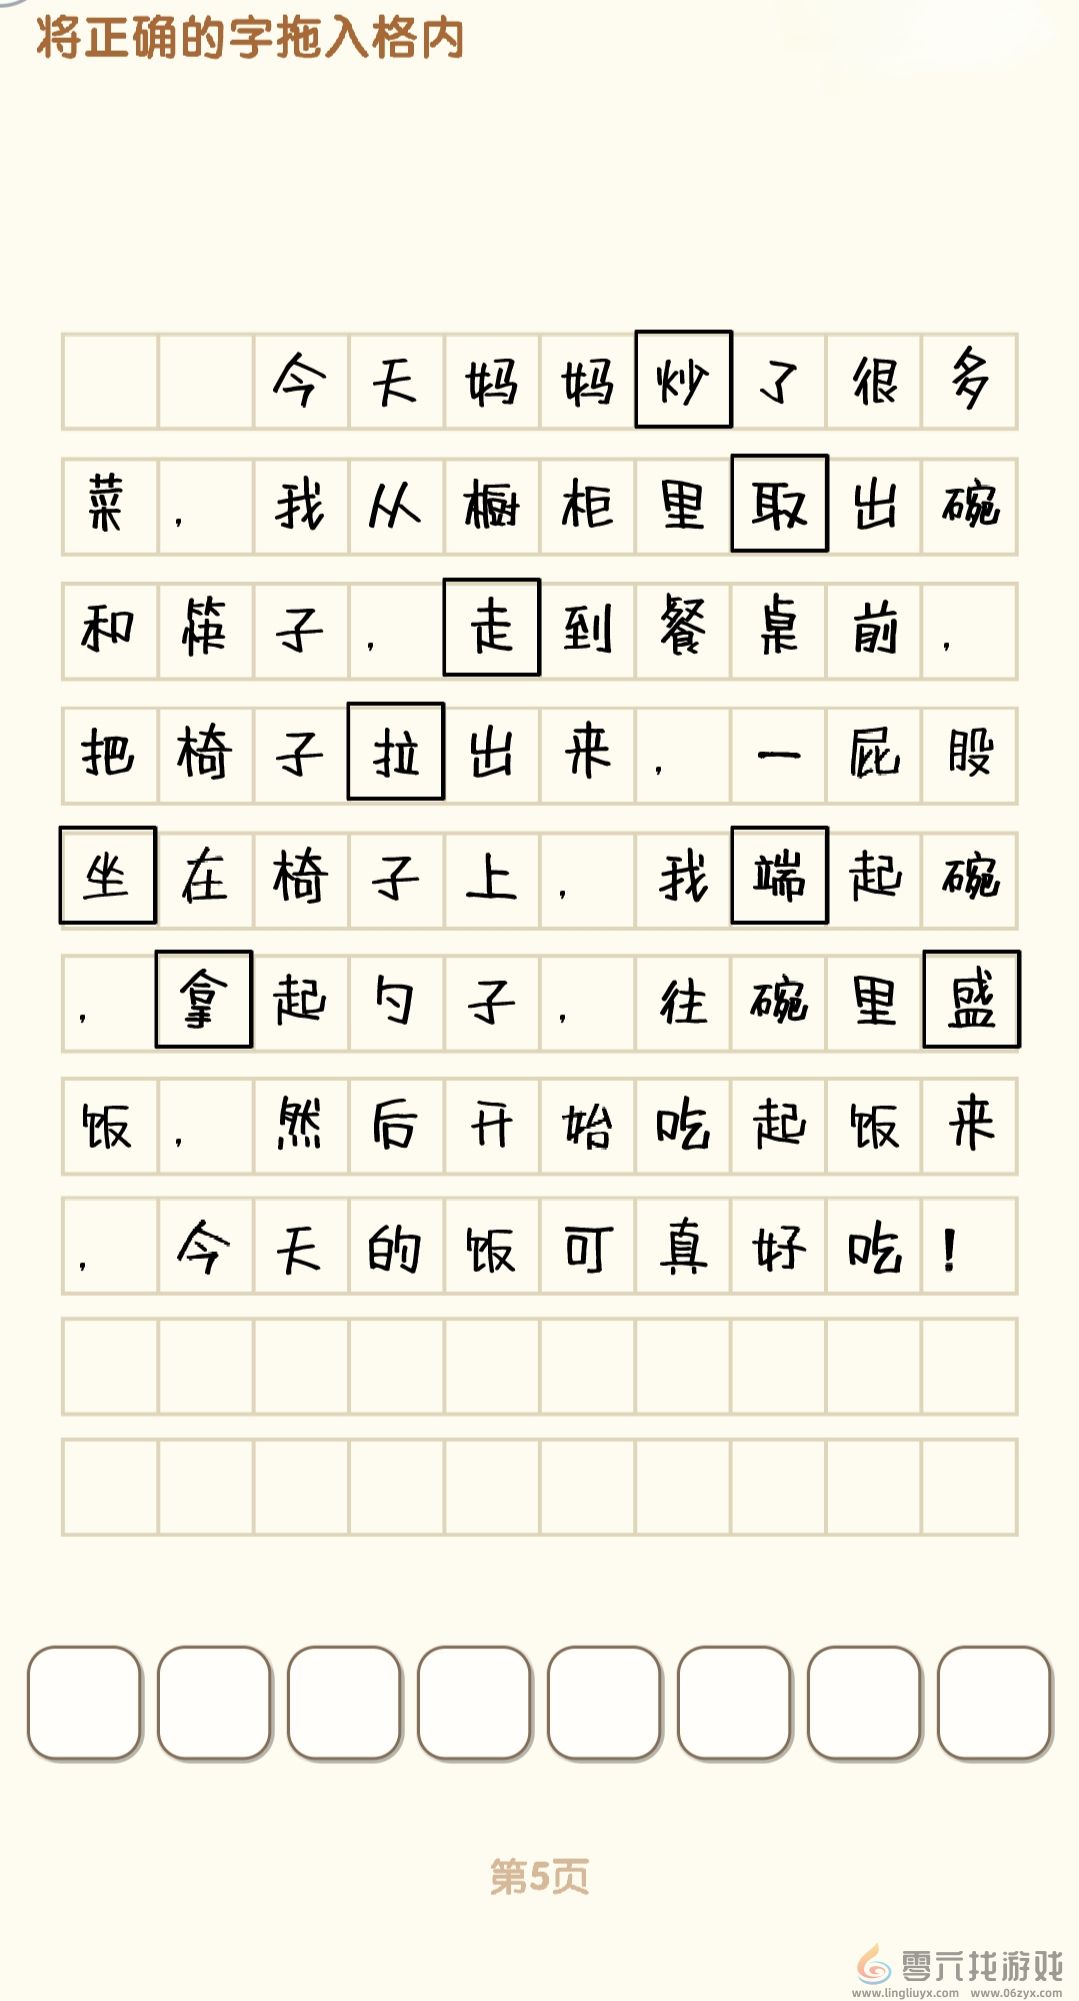 将正确的字拖入格内
今天妈妈炒了很多
菜,我从橱柜里取出碗
和筷子,走到餐桌前,
把椅子拉出来,一屁股
坐在椅子上,我端起碗
,拿起勺子,往碗里盛
饭,然后开始吃起饭来
,今天的饭可真好吃!
第5页
零元找游戏
www.lingliuyx.com www.06zyx.com